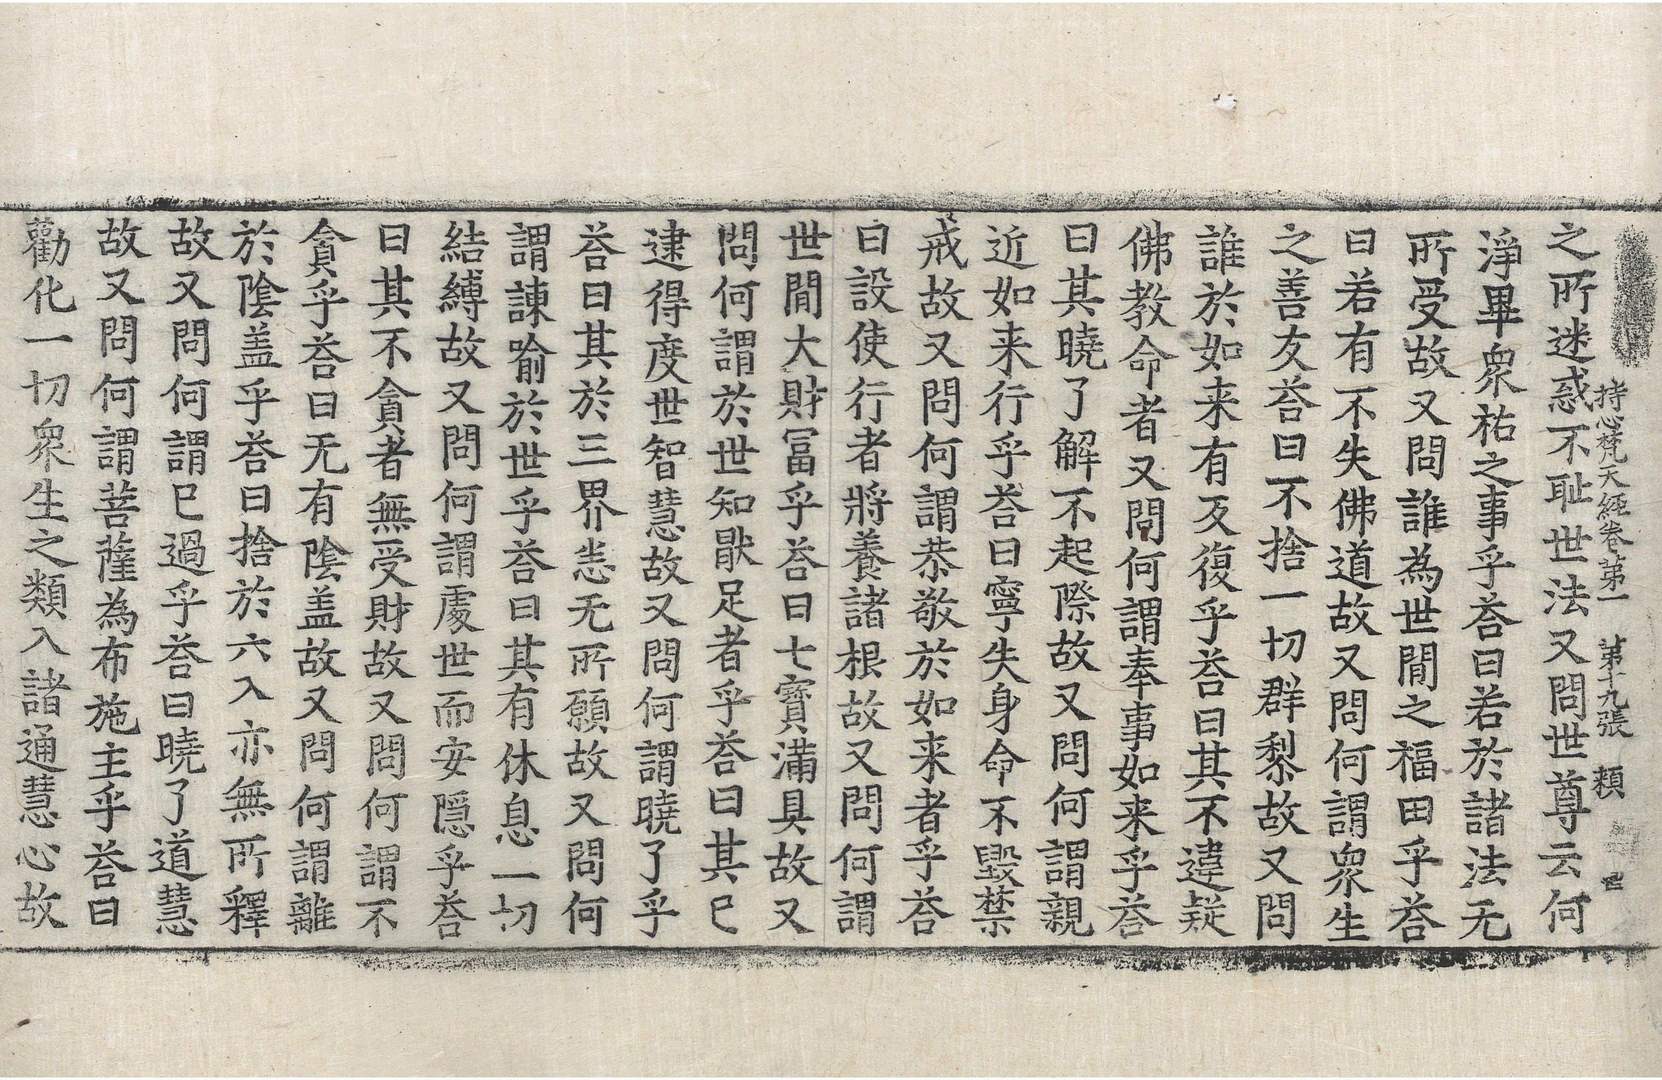 持心梵天經卷第一 第十九張 類
之所迷惑不耻世法又問世尊云何
淨畢衆祐之事乎荅曰若於諸法无
所受故又問誰為世閒之福田乎荅
曰若有不失佛道故又問何謂衆生
之善友荅曰不捨一切群梨故又問
誰於如来有反復乎荅曰其不違疑
佛教命者又問何謂奉事如来乎荅
曰其曉了解不起際故又問何謂親
近如来行乎荅曰寧失身命不毀禁
戒故又問何謂恭敬於如来者乎荅
曰設使行者將養諸根故又問何謂
世閒大財冨乎荅曰七寶滿具故又
問何謂於世知猒足者乎荅曰其已
逮得度世智慧故又問何謂曉了乎
荅曰其於三界恙无所願故又問何
謂諫喻於世乎荅曰其有休息一切
結縛故又問何謂處世而安隱乎荅
曰其不貪者無受財故又問何謂不
貪乎荅曰无有陰盖故又問何謂離
於陰盖乎荅曰捨於六入亦無所釋
故又問何謂已過乎荅曰曉了道慧
故又問何謂菩薩為布施主乎荅曰
勸化一切衆生之類入諸通慧心故